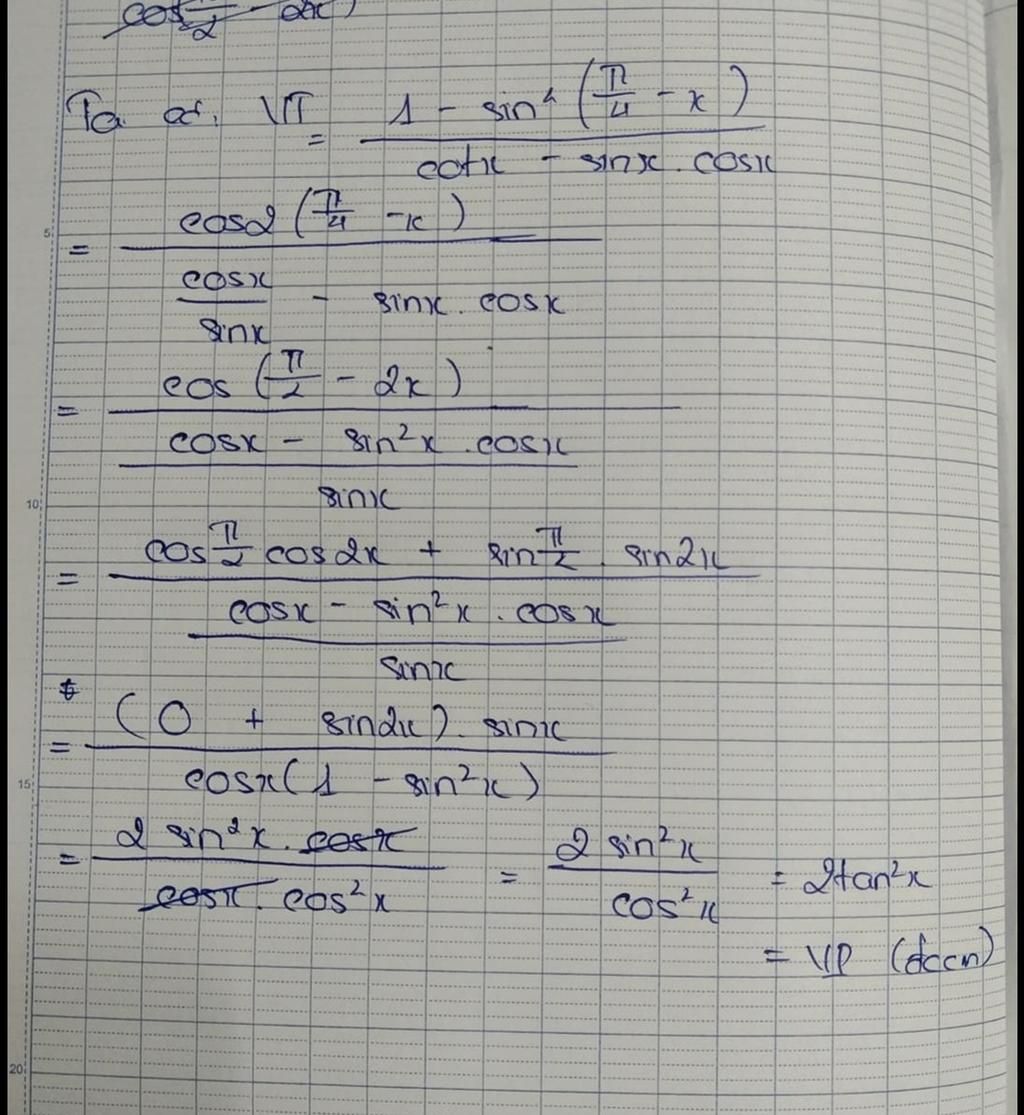 Ta có: VT = \frac{1 - sin^4 (\frac{π}{4} - x)}{cotx - sinx . cosx}
= \frac{cos2 (\frac{π}{4} - x)}{\frac{cosx}{sinx} - sinx . cosx}
= \frac{cos (\frac{π}{2} - 2x)}{\frac{cosx - sin^2x . cosx}{sinx}}
= \frac{cos\frac{π}{2} cos2x + sin\frac{π}{2} . sin2x}{\frac{cosx - sin^2x . cosx}{sinx}}
= \frac{(0 + sin2x) . sinx}{cosx(1 - sin^2x)}
= \frac{2 sin^2x . cosx}{cosx . cos^2x} = \frac{2 sin^2x}{cos^2x} = 2tan^2x
= VP (đccm)
5
10
15
20